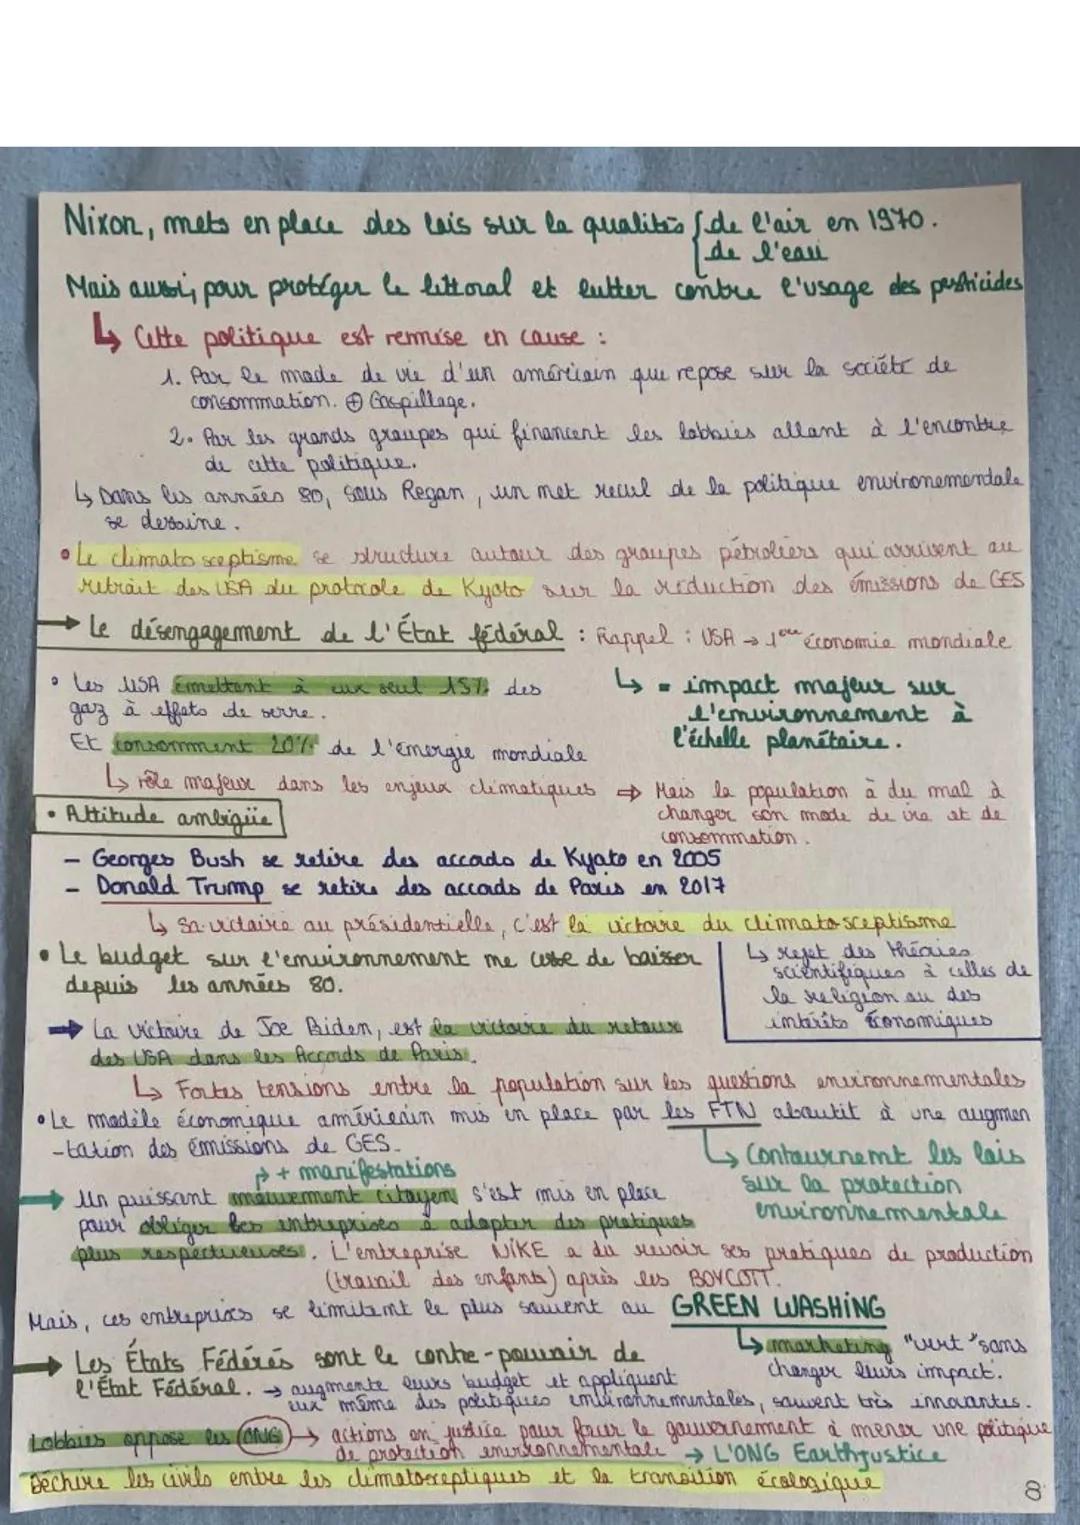 Nixon, mets en place des lois sur la qualités { de l'air en 1970.
de l'eau
Mais aussi, pour protéger le littoral et lutter contre l'usage des pesticides
↳ Cette politique est remise en cause :
1. Par le mode de vie d'un américain que repose sur la société de
consommation. ⊕ Gaspillage.
2. Par les grands groupes qui financent les lobbies allant à l'encontre
de cette politique.
↳ Dans les années 80, sous Regan, un net recul de la politique environnementale
se dessine.
• Le climato sceptisme se structure autour des groupes pétroliers qui arrivent au
retrait des USA du protocole de Kyoto sur la réduction des émissions de GES
→ Le désengagement de l'État fédéral : Rappel : USA → 1ère économie mondiale
↳ = impact majeur sur
l'environnement à
l'échelle planétaire.
• Les USA émettent à eux seul 15% des
gaz à effets de serre.
Et consomment 20% de l'énergie mondiale
↳ rôle majeur dans les enjeux climatiques ⇒ Mais la population à du mal à
changer son mode de vie et de
consommation.
• Attitude ambigüe
- Georges Bush se retire des accords de Kyoto en 2005
- Donald Trump se retire des accords de Paris en 2017
↳ Sa victoire au présidentielle, c'est la victoire du climato sceptisme
↳ rejet des théories
scientifiques à celles de
la religion ou des
intérêts économiques
• Le budget sur l'environnement ne cesse de baisser
depuis les années 80.
→ La victoire de Joe Biden, est la victoire du retour
des USA dans les Accords de Paris.
↳ Fortes tensions entre la population sur les questions environnementales
• Le modèle économique américain mis en place par les FTN aboutit à une augmen
-tation des émissions de GES.
↳ Contournent les lois
sur la protection
environnementale
↱ + manifestations
→ Un puissant mouvement citoyen s'est mis en place
pour obliger les entreprises à adopter des pratiques
plus respectueuses. L'entreprise NIKE a du revoir ses pratiques de production
(travail des enfants) après les BOYCOTT.
Mais, ces entreprises se limitent le plus souvent au GREEN WASHING
↳ marketing "vert" sans
changer leurs impact.
→ Les États Fédérés sont le contre-pouvoir de
l'État Fédéral. → augmente leurs budget et appliquent
eux même des politiques environnementales, souvent très innovantes.
Lobbies oppose les ONG → actions en justice pour forcer le gouvernement à mener une politique
de protection environnementale → L'ONG EarthJustice
Déchire les civils entre les climatosceptiques et la transition écologique
8